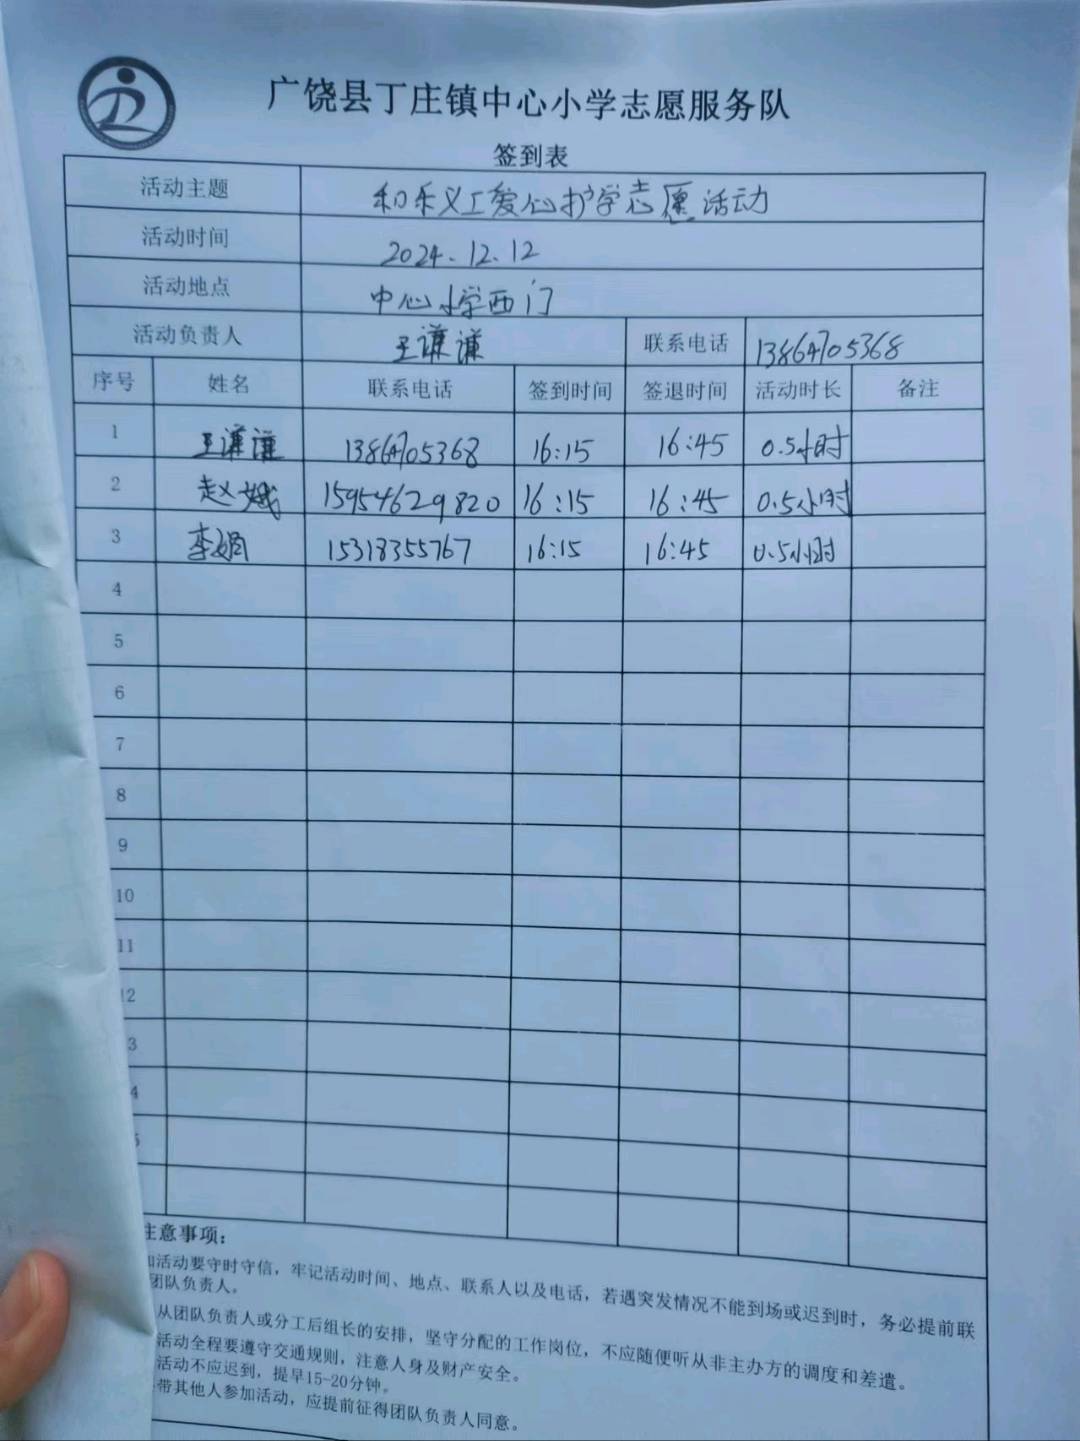 广饶县丁庄镇中心小学志愿服务队
签到表
活动主题 和乐义工爱心护学志愿活动
活动时间 2024.12.12
活动地点 中心小学西门
活动负责人 王谦谦 联系电话 13864705368
序号 姓名 联系电话 签到时间 签退时间 活动时长 备注
1 王谦谦 13864705368 16:15 16:45 0.5小时
2 赵娥 15954629820 16:15 16:45 0.5小时
3 李娟 15318355767 16:15 16:45 0.5小时
4
5
6
7
8
9
10
11
12
3
4
5
注意事项：
加活动要守时守信，牢记活动时间、地点、联系人以及电话，若遇突发情况不能到场或迟到时，务必提前联
团队负责人。
从团队负责人或分工后组长的安排，坚守分配的工作岗位，不应随便听从非主办方的调度和差遣。
活动全程要遵守交通规则，注意人身及财产安全。
活动不应迟到，提早15-20分钟。
带其他人参加活动，应提前征得团队负责人同意。